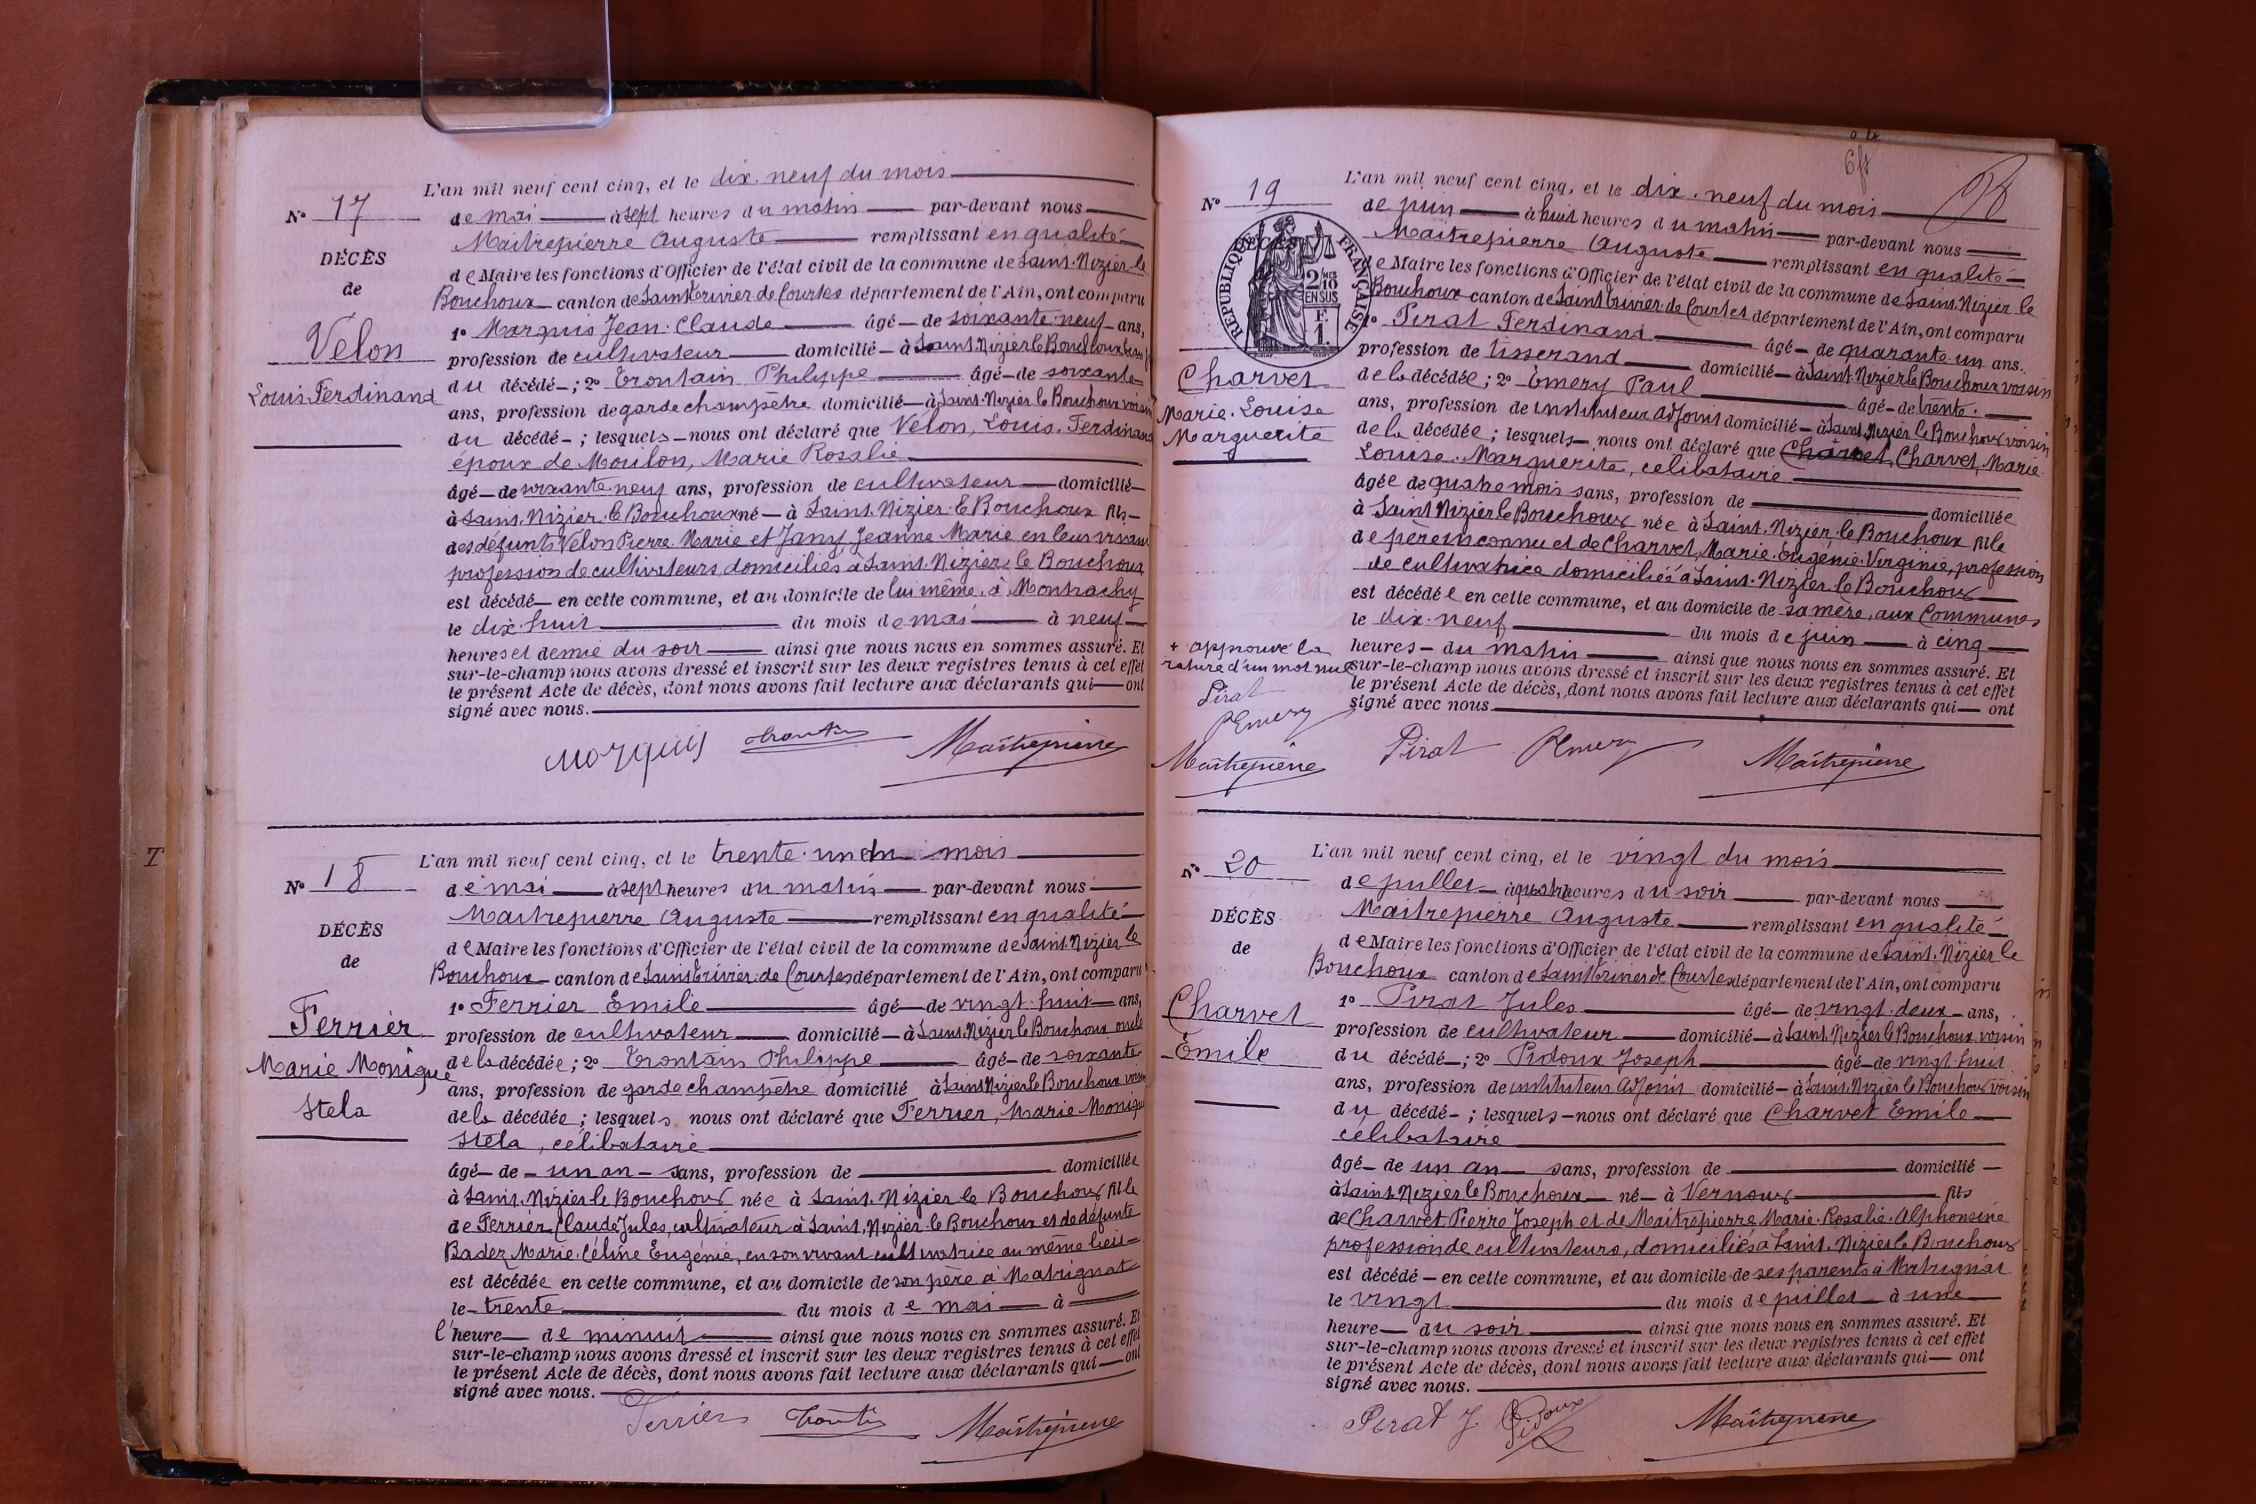 L'an mil neuf cent cinq, et le dix. neuf du mois
Nº 17
de mai à sept heures du matin par-devant nous
Maitrepierre Auguste remplissant en qualité
DÉCÈS
de Maire les fonctions d'Officier de l'état civil de la commune de Saint. Nizier le
de
Bouchoux canton de Saint Trivier de Courtes département de l'Ain, ont comparu
Velon
1º Marquis Jean. Claude âgé de soixante. neuf ans,
profession de cultivateur domicilié à Saint. Nizier le Bouchoux
Louis Ferdinand
du décédé ; 2º Trontain Philippe âgé de soixante
ans, profession de garde champêtre domicilié à Saint. Nizier le Bouchoux voisin
du décédé ; lesquels nous ont déclaré que Velon, Louis. Ferdinand
époux de Moulon, Marie Rosalie
âgé de soixante. neuf ans, profession de cultivateur domicilié
à Saint. Nizier. le Bouchoux né à Saint. Nizier. le Bouchoux fils
des défunts Velon Pierre. Marie et Jany Jeanne. Marie en leur vivant
profession de cultivateurs domiciliés à Saint. Nizier. le Bouchoux
est décédé en cette commune, et au domicile de lui même, à Montrachy
le dix. huit du mois de mai à neuf
heures et demie du soir ainsi que nous nous en sommes assuré. Et
sur-le-champ nous avons dressé et inscrit sur les deux registres tenus à cet effet
le présent Acte de décès, dont nous avons fait lecture aux déclarants qui ont
signé avec nous.
Marquis Trontin Maitrepierre
L'an mil neuf cent cinq, et le trente. un du mois
Nº 18
de mai à sept heures du matin par-devant nous
Maitrepierre Auguste remplissant en qualité
DÉCÈS
de Maire les fonctions d'Officier de l'état civil de la commune de Saint. Nizier le
de
Bouchoux canton de Saint Trivier. de Courtes département de l'Ain, ont comparu
Ferrier
1º Ferrier Emile âgé de vingt. huit ans,
profession de cultivateur domicilié à Saint. Nizier le Bouchoux oncle
Marie Monique
de la décédée ; 2º Trontain Philippe âgé de soixante
ans, profession de garde champêtre domicilié à Saint Nizier le Bouchoux voisin
Stela
de la décédée ; lesquels nous ont déclaré que Ferrier, Marie Monique
Stela, célibataire
âgé de un an sans, profession de domiciliée
à Saint. Nizier le Bouchoux née à Saint. Nizier le Bouchoux fille
de Ferrier Claude Jules, cultivateur à Saint. Nizier. le Bouchoux et de défunte
Badez Marie. Céline Eugénie, en son vivant cultivatrice au même lieu
est décédée en cette commune, et au domicile de son père à Matrignat
le trente du mois de mai à
l'heure de minuit ainsi que nous nous en sommes assuré. Et
sur-le-champ nous avons dressé et inscrit sur les deux registres tenus à cet effet
le présent Acte de décès, dont nous avons fait lecture aux déclarants qui ont
signé avec nous.
Ferrier Trontin Maitrepierre
L'an mil neuf cent cinq, et le dix. neuf du mois
Nº 19
de juin à huit heures du matin par-devant nous
Maitrepierre Auguste remplissant en qualité
RÉPUBLIQUE FRANÇAISE
2/10 EN SUS
F. 1.
de Maire les fonctions d'Officier de l'état civil de la commune de Saint. Nizier le
Bouchoux canton de Saint Trivier de Courtes département de l'Ain, ont comparu
1º Pirat Ferdinand âgé de quarante. un ans.
profession de tisserand domicilié à Saint. Nizier le Bouchoux voisin
Charvet
de la décédée ; 2º Émery Paul âgé de trente.
Marie. Louise
ans, profession de instituteur adjoint domicilié à Saint. Nizier le Bouchoux voisin
Marguerite
de la décédée ; lesquels nous ont déclaré que Charvet, Charvet, Marie
Louise. Marguerite, célibataire
âgée de quatre mois sans, profession de domiciliée
à Saint Nizier le Bouchoux née à Saint. Nizier. le Bouchoux fille
de père inconnu et de Charvet, Marie. Eugénie. Virginie, profession
de cultivatrice domiciliée à Saint. Nizier. le Bouchoux
est décédée en cette commune, et au domicile de sa mère, aux Communes
le dix. neuf du mois de juin à cinq
heures du matin ainsi que nous nous en sommes assuré. Et
+ approuvé la
rature d'un mot nul
sur-le-champ nous avons dressé et inscrit sur les deux registres tenus à cet effet
le présent Acte de décès, dont nous avons fait lecture aux déclarants qui ont
signé avec nous
Pirat
PEmery
Maitrepierre
Pirat PEmery Maitrepierre
L'an mil neuf cent cinq, et le vingt du mois
Nº 20
de juillet à quatre heures du soir par-devant nous
Maitrepierre Auguste remplissant en qualité
DÉCÈS
de Maire les fonctions d'Officier de l'état civil de la commune de Saint. Nizier le
de
Bouchoux canton de Saint Trivier de Courtes département de l'Ain, ont comparu
Charvet
1º Pirat Jules âgé de vingt. deux ans,
profession de cultivateur domicilié à Saint. Nizier le Bouchoux voisin
Émile
du décédé ; 2º Pidoux Joseph âgé de vingt. huit
ans, profession de instituteur adjoint domicilié à Saint. Nizier le Bouchoux voisin
du décédé ; lesquels nous ont déclaré que Charvet Emile
célibataire
âgé de un an sans, profession de domicilié
à Saint. Nizier le Bouchoux né à Vernoux fils
de Charvet Pierre Joseph et de Maitrepierre Marie. Rosalie. Alphonsine
profession de cultivateurs, domiciliés à Saint. Nizier le Bouchoux
est décédé en cette commune, et au domicile de ses parents à Matrignat
le vingt du mois de juillet à une
heure du soir ainsi que nous nous en sommes assuré. Et
sur-le-champ nous avons dressé et inscrit sur les deux registres tenus à cet effet
le présent Acte de décès, dont nous avons fait lecture aux déclarants qui ont
signé avec nous.
Pirat J Pidoux Maitrepierre